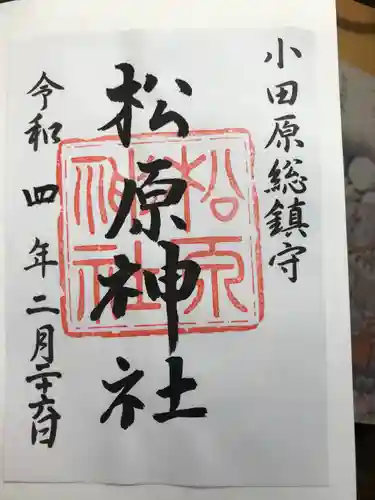 小田原総鎮守
松原神社
令和四年二月二十六日
松原
神社